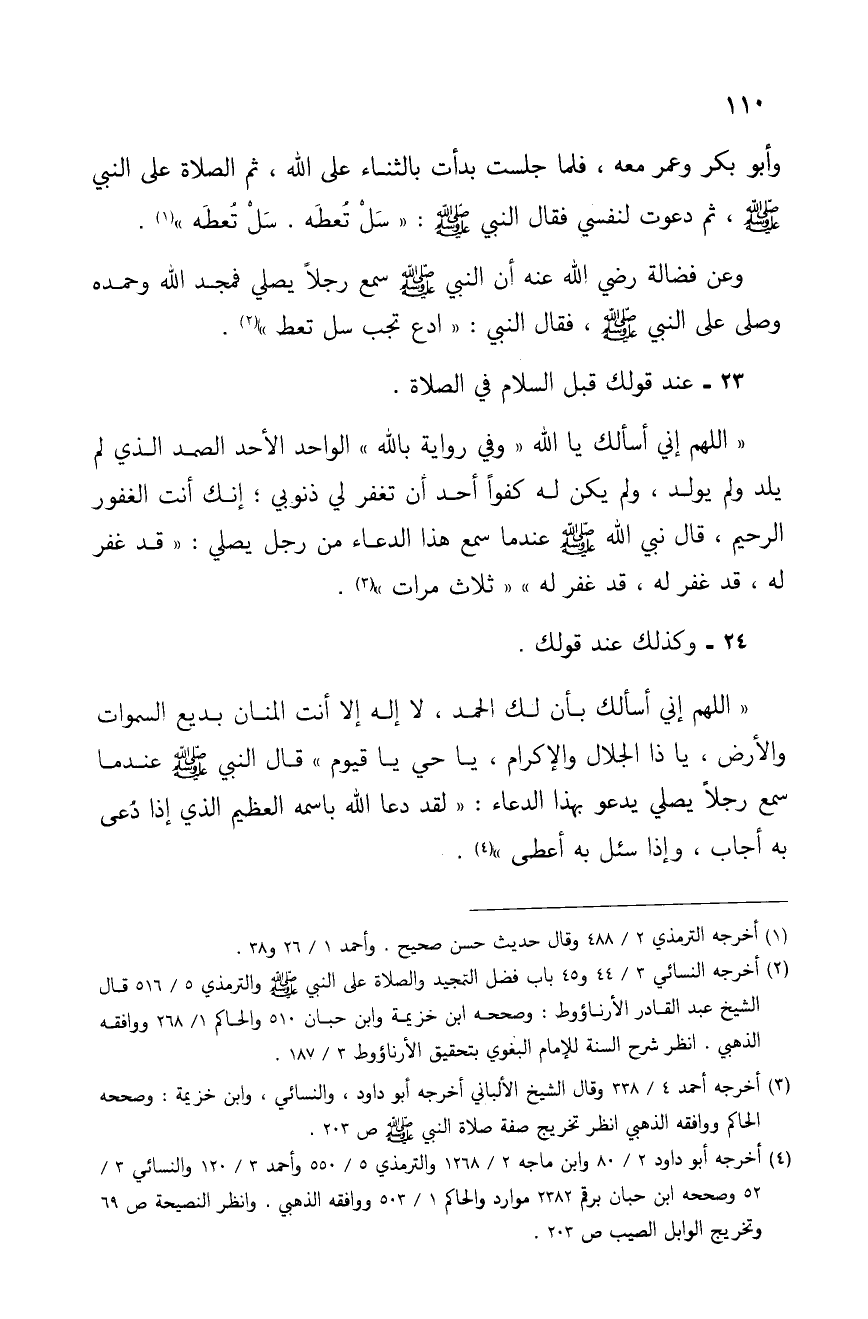 ١١٠
وأبو بكر وعمر معه ، فلما جلست بدأت بالثناء على الله ، ثم الصلاة على النبي
ﷺ ، ثم دعوت لنفسي فقال النبي ﷺ : « سَلْ تُعطَه . سَلْ تُعطَه »(١) .
وعن فضالة رضي الله عنه أن النبي ﷺ سمع رجلاً يصلي فمجد الله وحمده
وصلى على النبي ﷺ ، فقال النبي : « ادع تجب سل تعط »(٢) .
٢٣ ـ عند قولك قبل السلام في الصلاة .
« اللهم إني أسألك يا الله « وفي رواية بالله » الواحد الأحد الصمد الذي لم
يلد ولم يولد ، ولم يكن له كفواً أحد أن تغفر لي ذنوبي ؛ إنك أنت الغفور
الرحيم ، قال نبي الله ﷺ عندما سمع هذا الدعاء من رجل يصلي : « قد غفر
له ، قد غفر له ، قد غفر له » « ثلاث مرات »(٣) .
٢٤ ـ وكذلك عند قولك .
« اللهم إني أسألك بأن لك الحمد ، لا إله إلا أنت المنان بديع السموات
والأرض ، يا ذا الجلال والإكرام ، يا حي يا قيوم » قال النبي ﷺ عندما
سمع رجلاً يصلي يدعو بهذا الدعاء : « لقد دعا الله باسمه العظيم الذي إذا دُعى
به أجاب ، وإذا سئل به أعطى »(٤) .
(١) أخرجه الترمذي ٢ / ٤٨٨ وقال حديث حسن صحيح . وأحمد ١ / ٢٦ و٣٨ .
(٢) أخرجه النسائي ٣ / ٤٤ و٤٥ باب فضل التمجيد والصلاة على النبي ﷺ والترمذي ٥ / ٥١٦ قال
الشيخ عبد القادر الأرناؤوط : وصححه ابن خزيمة وابن حبان ٥١٠ والحاكم ١/ ٢٦٨ ووافقه
الذهبي . انظر شرح السنة للإمام البغوي بتحقيق الأرناؤوط ٣ / ١٨٧ .
(٣) أخرجه أحمد ٤ / ٣٣٨ وقال الشيخ الألباني أخرجه أبو داود ، والنسائي ، وابن خزيمة : وصححه
الحاكم ووافقه الذهبي انظر تخريج صفة صلاة النبي ﷺ ص ٢٠٣ .
(٤) أخرجه أبو داود ٢ / ٨٠ وابن ماجه ٢ / ١٢٦٨ والترمذي ٥ / ٥٥٠ وأحمد ٣ / ١٢٠ والنسائي ٣ /
٥٢ وصححه ابن حبان برقم ٢٣٨٢ موارد والحاكم ١ / ٥٠٣ ووافقه الذهبي . وانظر النصيحة ص ٦٩
وتخريج الوابل الصيب ص ٢٠٣ .